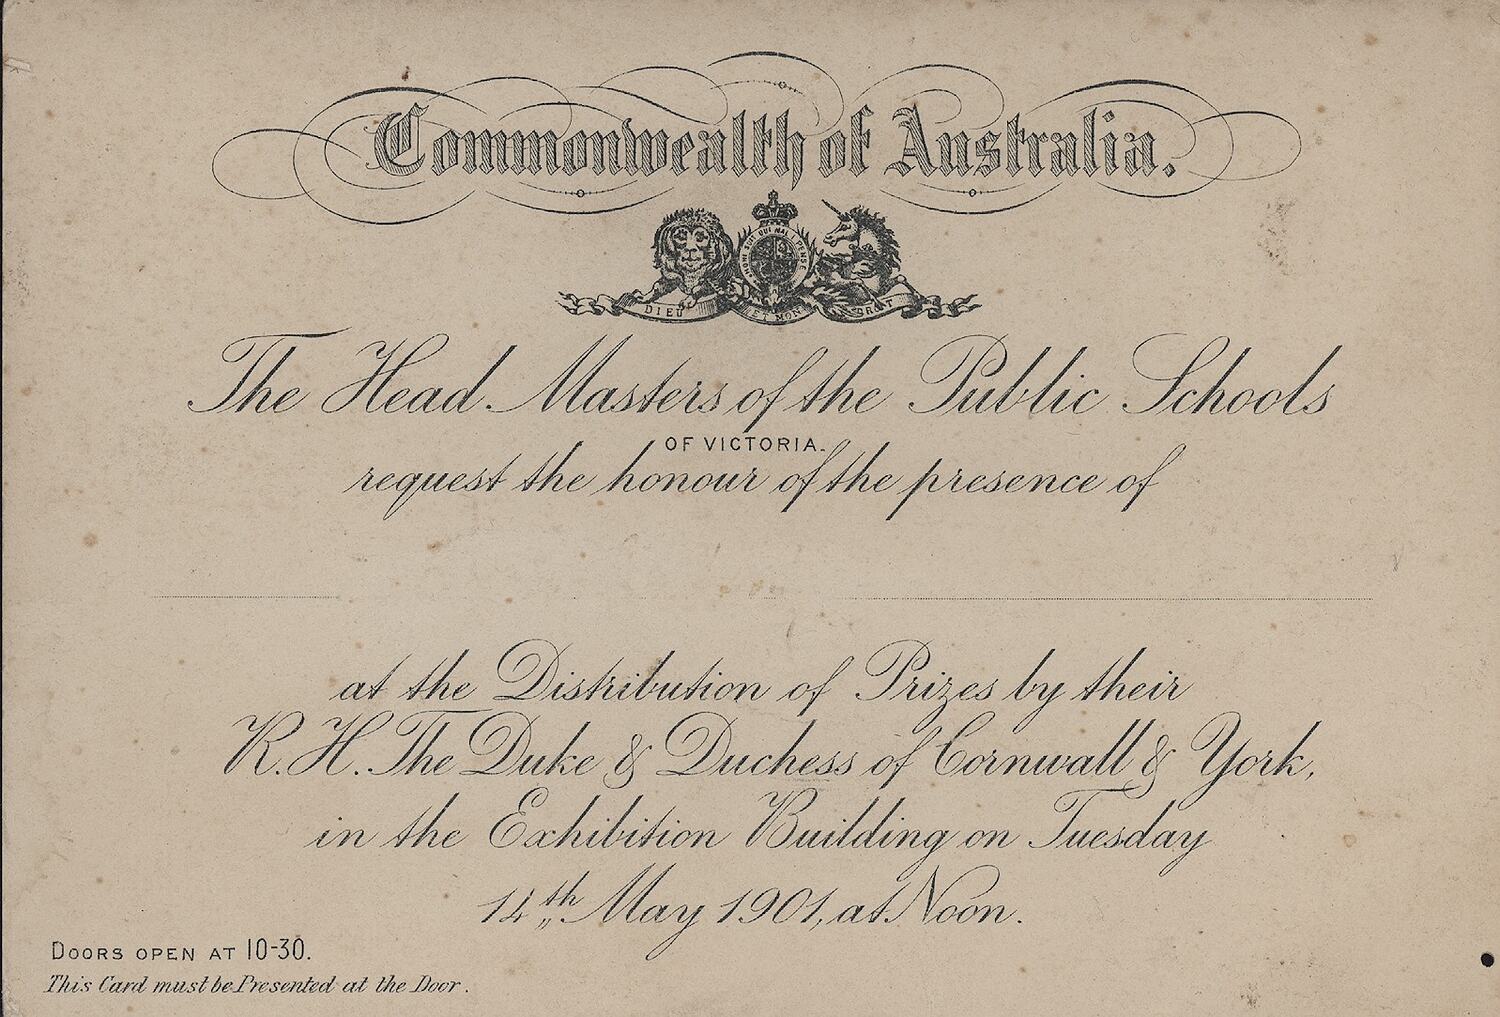 Commonwealth of Australia.
HONI SOIT QUI MAL Y PENSE
DIEU ET MON DROIT
The Head Masters of the Public Schools
OF VICTORIA.
request the honour of the presence of
at the Distribution of Prizes by their
R. H. The Duke & Duchess of Cornwall & York,
in the Exhibition Building on Tuesday
14th May 1901, at Noon.
DOORS OPEN AT 10-30.
This Card must be Presented at the Door.